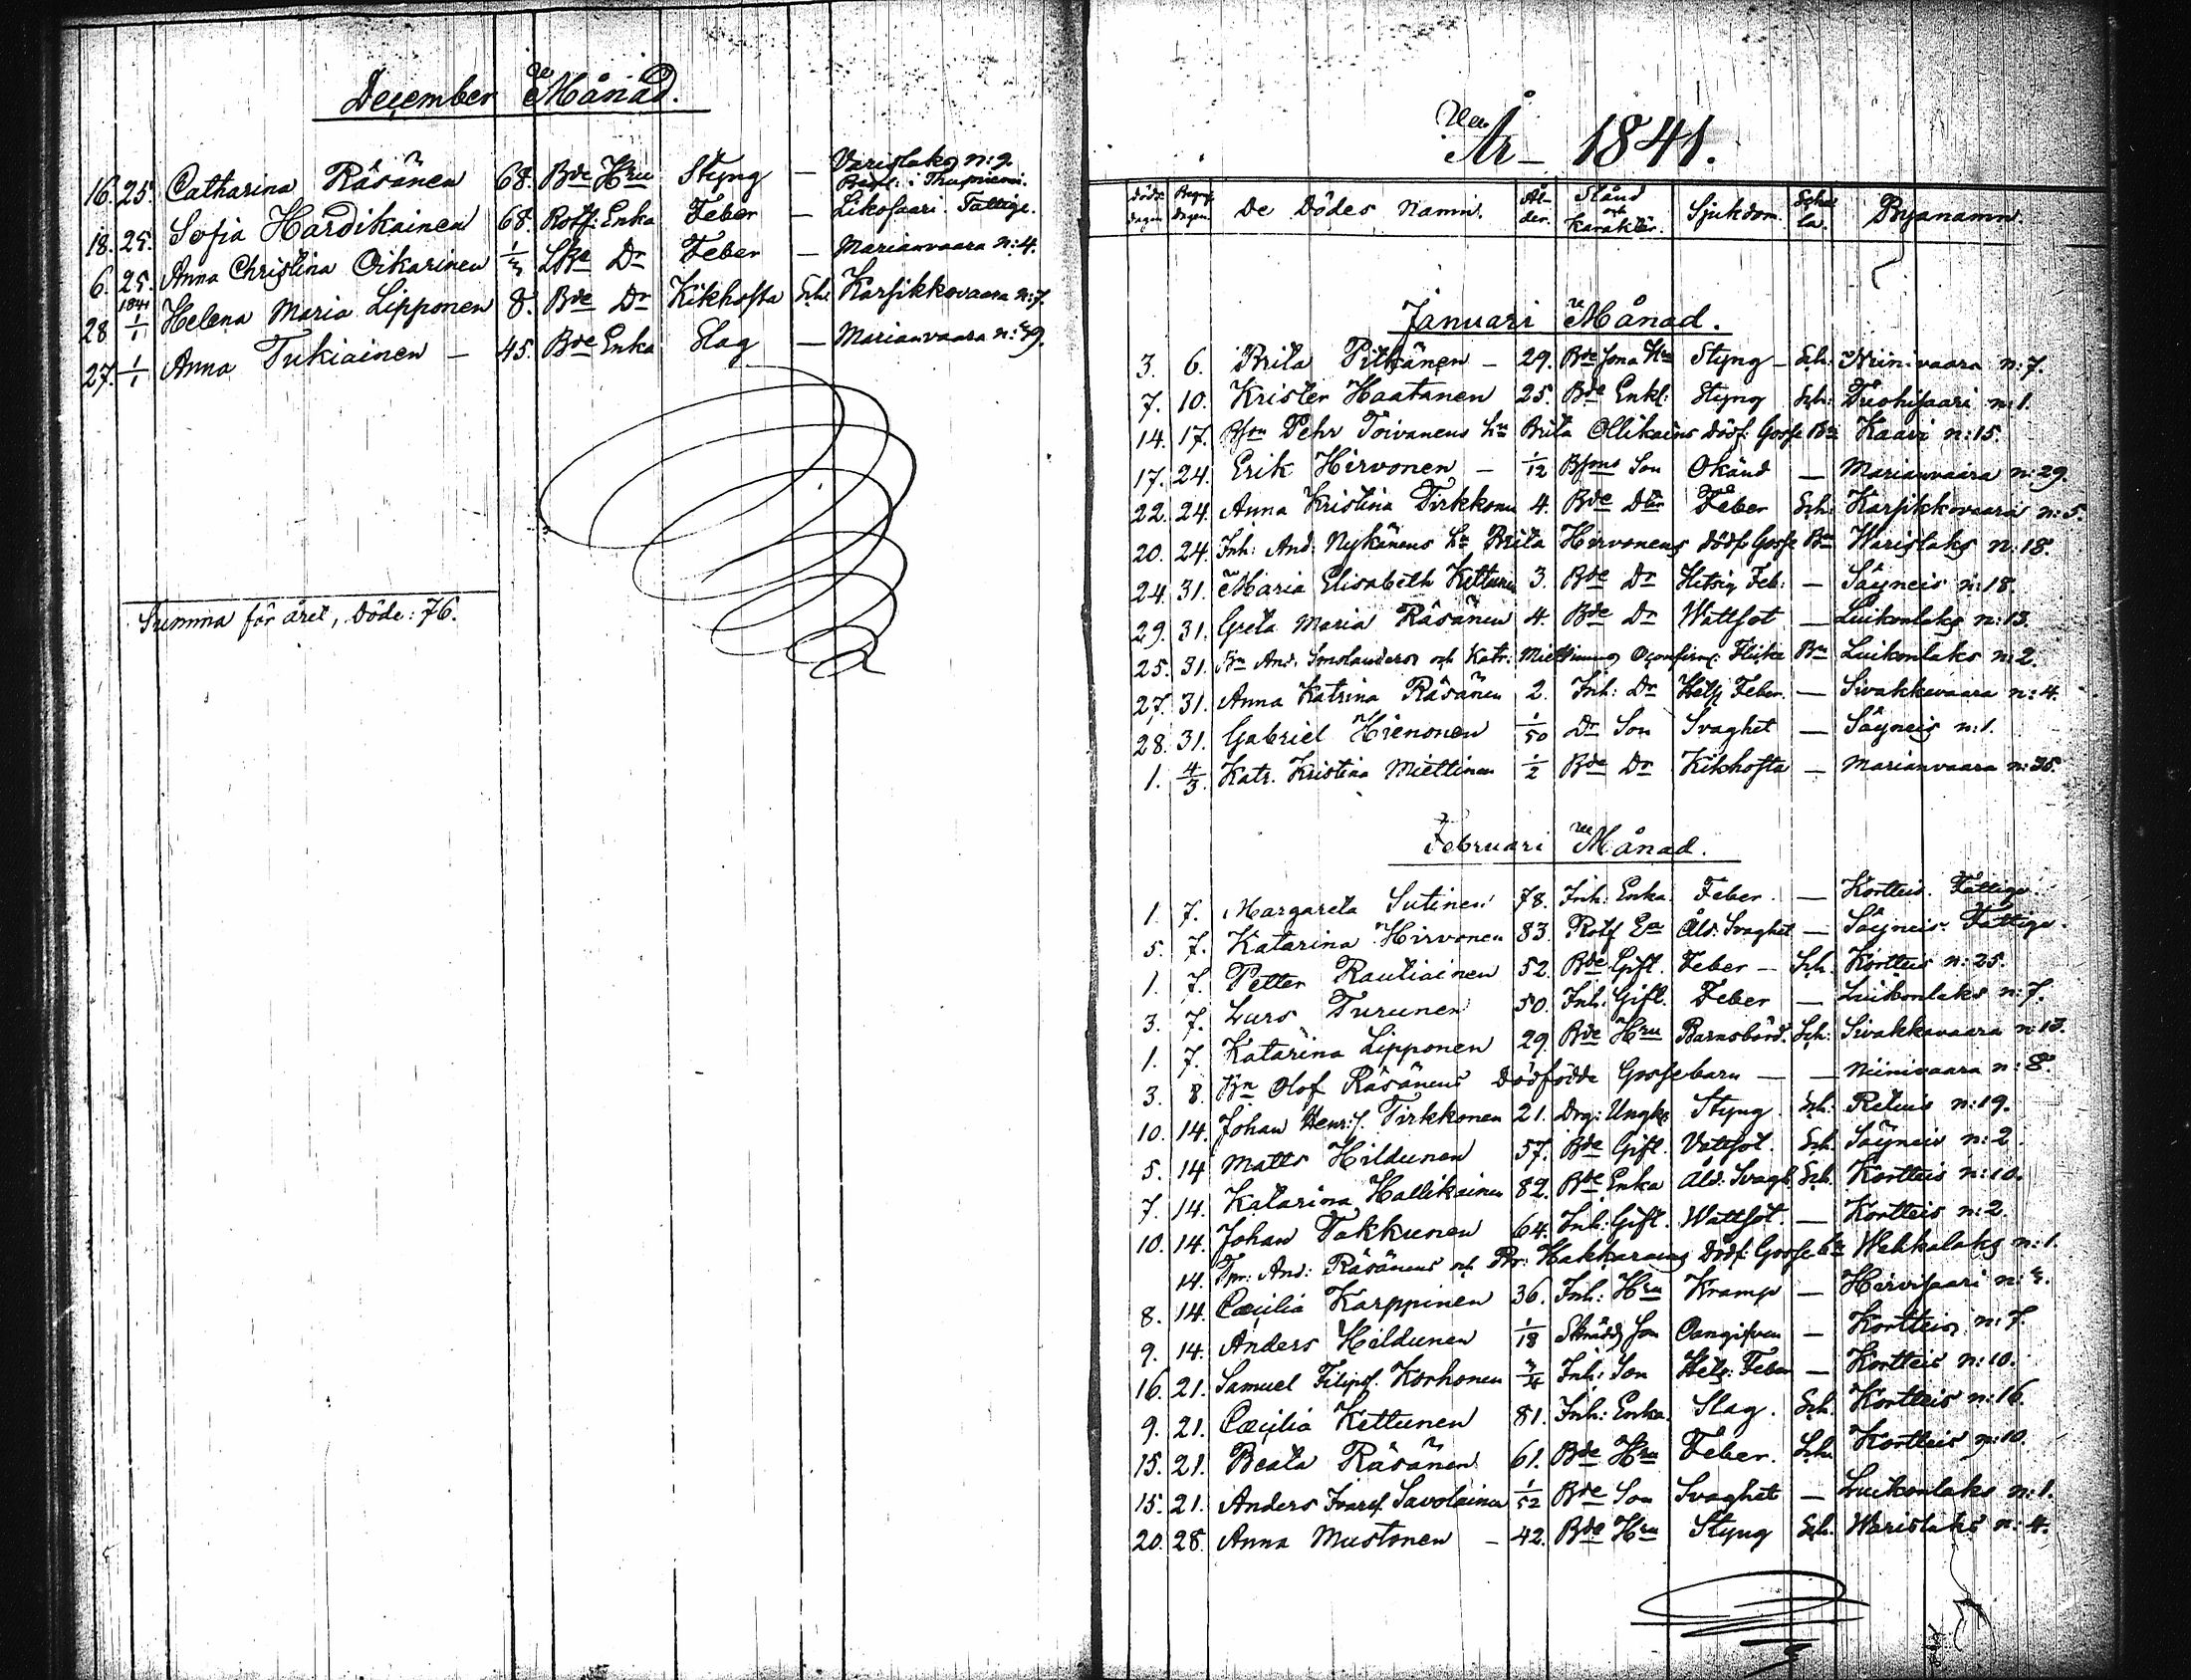 December Månad.
16. 25. Catharina Räsänen 68. Bde Hru Styng — Varislaks n:9.
Begr: i Thusniemi.
18. 25. Sofia Hardikainen 68. Rotf: Enka Feber — Likosaari. Fattige.
6. 25. Anna Christina Oikarinen Dr Feber — Marianvaara n:4.
1841
28 1/1 Helena Maria Lipponen 8. Bde Dr Kikhosta Sch: Karsikkovaara n:7.
27. 1/1 Anna Tukiainen — 45. Bde Enka Slag — Marianvaara n:39.
Summa för året, Döde: 76.
År 1841.
Döds dagen Begrf: dagen. De Dödes Namn. Ål-der. Stånd och Karaktär. Sjukdom. Scha la. Byanamn.
Januari Månad.
3. 6. Brita Pitkänen — 29. Bde Sona Hu Styng — Sch: Niinivaara n:7.
7. 10. Krister Haatanen 25. Bde Enkl: Styng Sch: Tuohisaari n:1.
14. 17. Bson Pehr Toivanens Hu Brita Ollikains Dödf: Gosse Bn Kaavi n:15.
17. 24. Erik Hirvonen — 1/12 Bsons Son Okänd — Marianvaara n:29.
22. 24. Anna Kristina Tirkkonen 4. Bde Dtr Feber Sch: Karsikkovaara n:5.
20. 24. Inh: And: Nykänens Hu Brita Hirvonens dödf: Gosse Bn Warislaks n:18.
24. 31. Maria Elisabeth Kettunen 3. Bde Dr Hitsig Feb: — Säyneis n:18.
29. 31. Greta Maria Räsänen 4. Bde Dr Wattsot — Luikonlaks n:13.
25. 31. Bn And: Smolanders och Katr: Miettinens Oconfirm: Flicka Bn Luikonlaks n:2.
27. 31. Anna Katrina Räsänen 2. Inh: Dr Hets Feber. — Sivakkavaara n:4.
28. 31. Gabriel Hienonen 1/50 Dr Son Svaghet — Säyneis n:1.
1. 4/3 Katr. Kristina Miettinen 1/2 Bde Dr Kikhosta — Marianvaara n:35.
Februari Månad.
1. 7. Margareta Sutinen 78. Inh: Enka. Feber. — Kortteis. Fattige.
5. 7. Katarina Hirvonen 83. Rotf Ea Åld: Svaghet — Säyneis. Fattige.
1. 7. Petter Rautiainen 52. Bde Gift. Feber — Sch. Kortteis n:25.
3. 7. Lars Turunen 50. Inh: Gift. Feber — Luikonlaks n:7.
1. 7. Katarina Lipponen 29. Bde Hru Barnsbörd. Sch: Sivakkavaara n:13.
3. 8. Bn Olof Räsänens Dödfödda Gossebarn — — Niinivaara n:8.
10. 14. Johan Henr:s. Tirkkonen 21. Drg: Ungk: Styng Sch: Retuis n:19.
5. 14 Matts Hildunen 57. Bde Gift. Vattsot. Sch. Säyneis n:2.
7. 14. Katarina Hallikainen 82. Bde Enka Åld: Svagh. Sch. Kortteis n:10.
10. 14. Johan Takkunen 64. Inh: Gift. Wattsot. — Kortteis n:2.
14. Tpr: And: Räsänens och Br: Hakkarains Dödf: Gosse bn Wehkalaks n:1.
8. 14. Cæcilia Karppinen 36. Inh: Hru Kramp — Hirvisaari n:3.
9. 14. Anders Hildunen 1/18 Skrädd: Son Oangifven — Kortteis n:7.
16. 21. Samuel Filips. Korhonen 3/4 Inh: Son Hets: Feber — Kortteis n:10.
9. 21. Cæcilia Kettunen 81. Inh: Enka. Slag. Sch. Kortteis n:16.
15. 21. Beata Räsänen 61. Bde Hru Feber. Sch. Kortteis n:10.
15. 21. Anders Ivars. Savolainen 1/52 Bde Son Svaghet — Luikonlaks n:1.
20. 28. Anna Mustonen — 42. Bde Hru Styng Sch. Warislaks n:4.